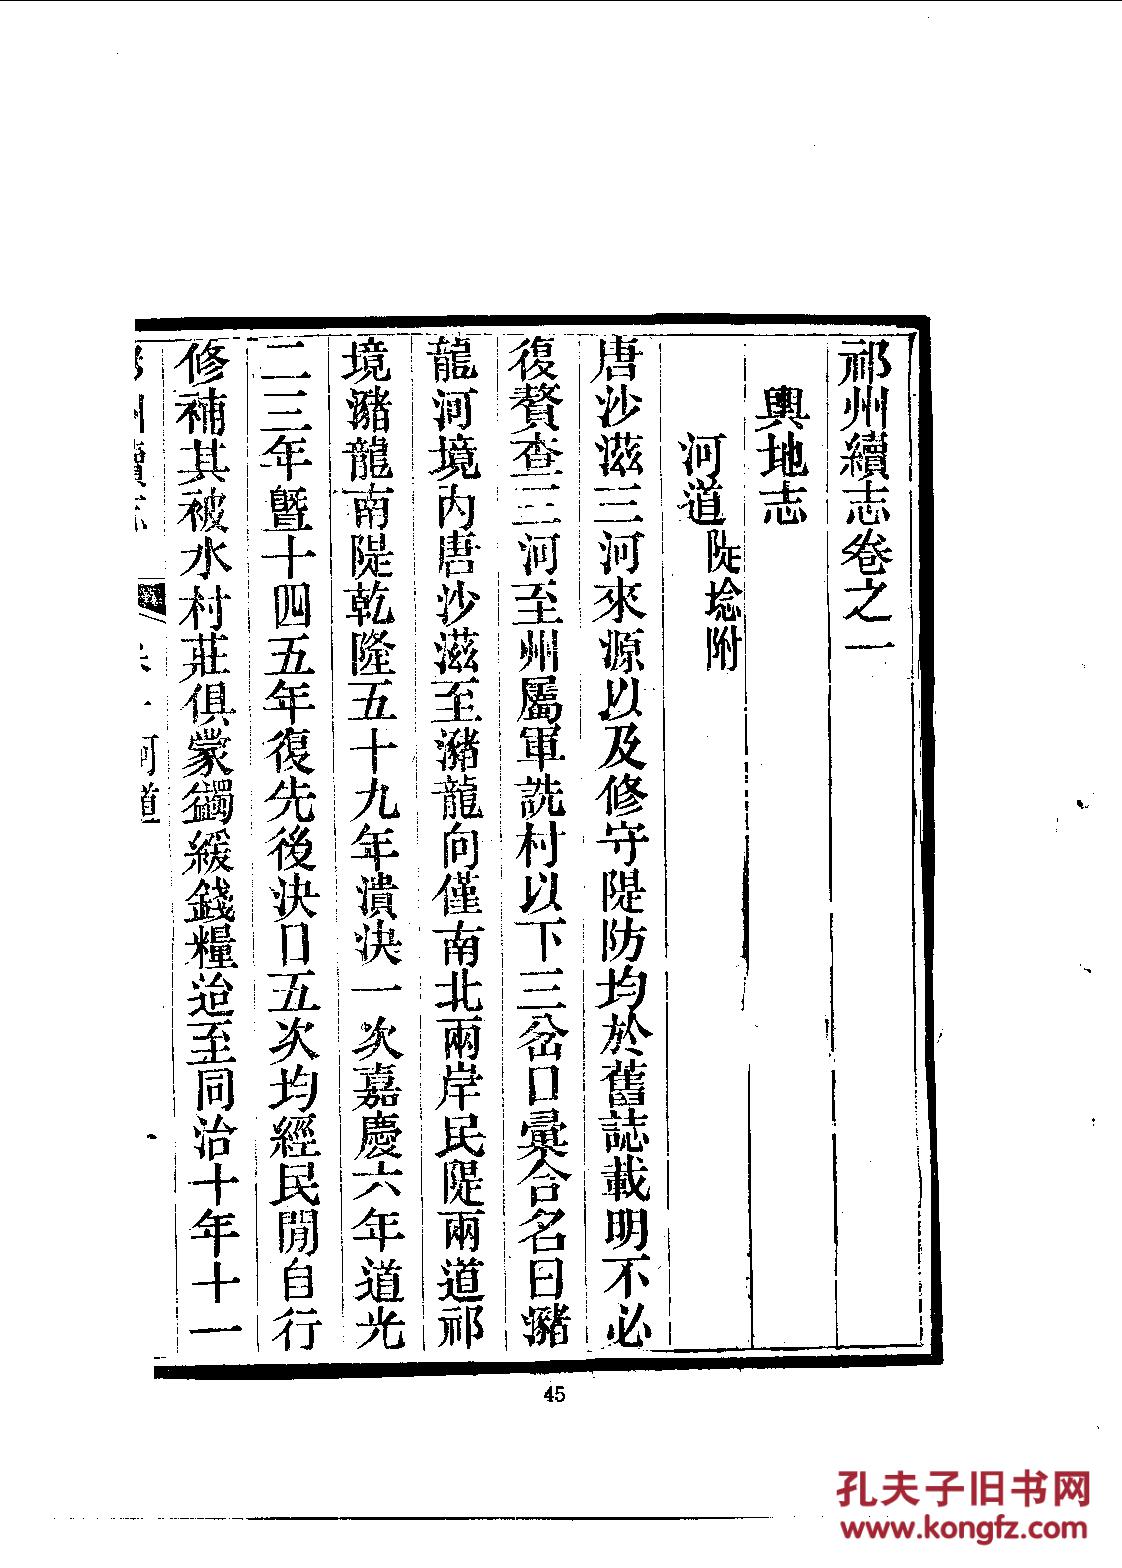 祁州續志卷之一
輿地志
河道 陡埝附
唐沙滋三河來源以及修守隄防均於舊誌載明不必
復贅查三河至州屬軍詵村以下三岔口彙合名曰瀦
龍河境內唐沙滋至瀦龍向僅南北兩岸民隄兩道祁
境瀦龍南隄乾隆五十九年潰決一次嘉慶六年道光
二三年曁十四五年復先後決口五次均經民閒自行
修補其被水村莊俱蒙蠲緩錢糧迨至同治十年十一
州續志 河道
45
孔夫子旧书网
www.kongfz.com